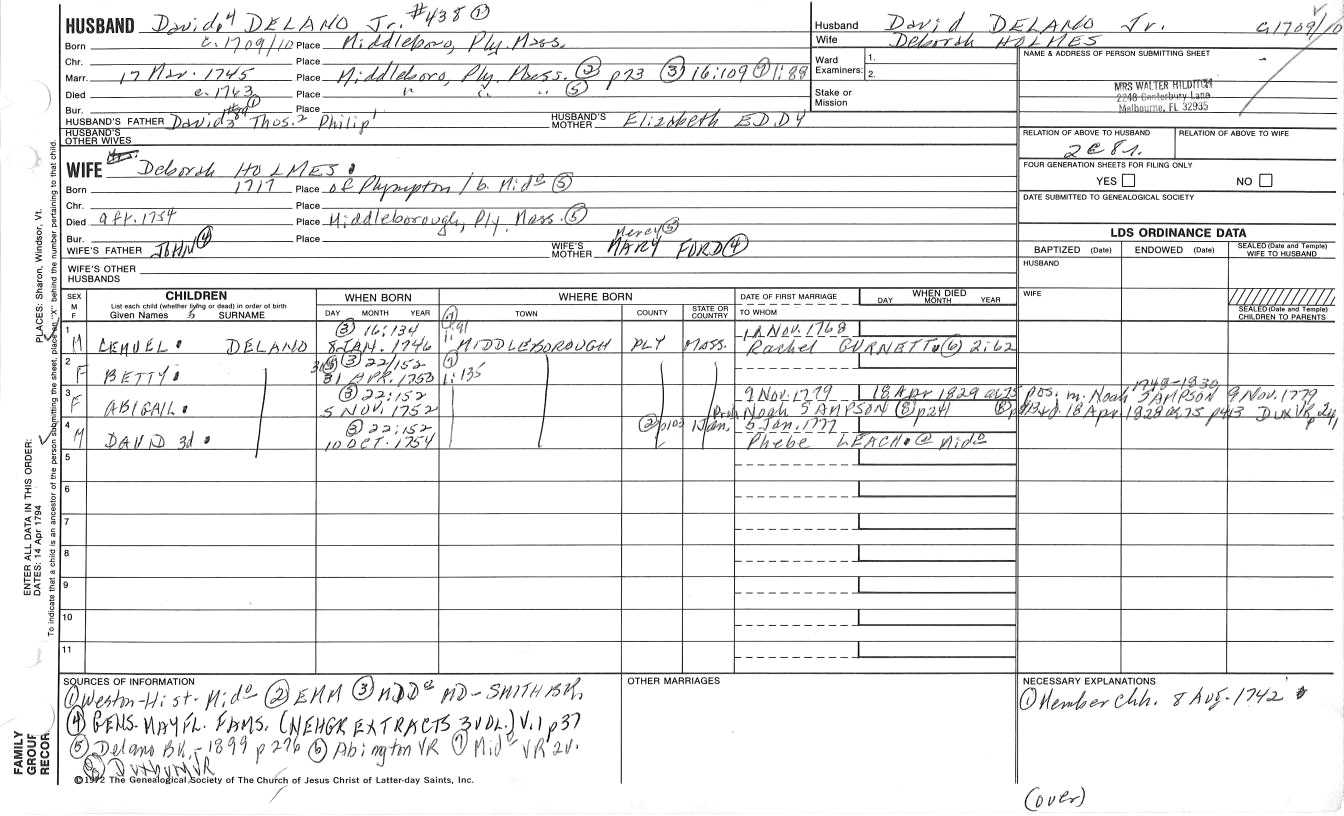 HUSBAND David⁴ DELANO Jr. #438 ①
Born c.1709/10 Place Middleboro, Ply. Mass.
Chr. Place
Marr. 17 Mar. 1745 Place Middleboro, Ply. Mass. ② p73 ③ 16:109 ⑦ 1:88
Died c.1763 Place " " " ⑤
Bur. Place
HUSBAND'S FATHER David³ Thos.² Philip¹ HUSBAND'S MOTHER Elizabeth EDDY
HUSBAND'S OTHER WIVES
Husband David DELANO Jr. c.1709/10
Wife Deborah HOLMES
Ward Examiners: 1. 2.
Stake or Mission
NAME & ADDRESS OF PERSON SUBMITTING SHEET
MRS WALTER HILDITCH
2248 Canterbury Lane
Melbourne, FL 32935
RELATION OF ABOVE TO HUSBAND RELATION OF ABOVE TO WIFE
2C 8r.
FOUR GENERATION SHEETS FOR FILING ONLY
YES NO
DATE SUBMITTED TO GENEALOGICAL SOCIETY
WIFE Deborah HOLMES
Born 1717 Place of Plympton / b. Mido ⑤
Chr. Place
Died aft. 1754 Place Middleborough, Ply. Mass. ⑤
Bur. Place
WIFE'S FATHER JOHN ④ WIFE'S MOTHER Mercy ⑤ MARY FORD ④
WIFE'S OTHER HUSBANDS
LDS ORDINANCE DATA
BAPTIZED (Date) ENDOWED (Date) SEALED (Date and Temple) WIFE TO HUSBAND
HUSBAND
WIFE
SEALED (Date and Temple) CHILDREN TO PARENTS
SEX M F
CHILDREN
List each child (whether living or dead) in order of birth
Given Names 5 SURNAME
WHEN BORN
DAY MONTH YEAR
WHERE BORN
TOWN COUNTY STATE OR COUNTRY
DATE OF FIRST MARRIAGE
TO WHOM
WHEN DIED
DAY MONTH YEAR
1 ③ 16:134 ⑦ 1:91 Nov. 1768
M LEMUEL DELANO 8 JAN. 1746 MIDDLEBOROUGH PLY MASS. Rachel BURNETT ⑥ 2:62
2 ③ 22/152 ⑦
F BETTY 31 APR. 1750 1:135
3 ③ 22:152 9 Nov. 1779 18 Apr 1829 ae 75 pos. m. Noah SAMPSON 9 Nov. 1779 1748-1830
F ABIGAIL 5 NOV. 1752 Noah SAMPSON ⑧ p241 ⑧ d. 18 Apr. 1828 ae 75 p413 Dux VR
4 ③ 22:152 ② p103 5 Jan. 1777
M DAVID 3d 10 OCT. 1754 Phebe LEACH @ Mido
5
6
7
8
9
10
11
SOURCES OF INFORMATION
① Weston-Hist- Mido ② EMM ③ MD - SMITH BK.
④ GENS. MAYFL. FAMS. (NEHGR EXTRACTS 3 VOL.) V.1 p37
⑤ Delano BK.-1899 p 276 ⑥ Abington VR ⑦ Mido VR 2v.
⑧ Duxbury VR
OTHER MARRIAGES
NECESSARY EXPLANATIONS
① Member Chh. 8 Aug. 1742
(over)
©1972 The Genealogical Society of The Church of Jesus Christ of Latter-day Saints, Inc.
FAMILY GROUP RECOR
ENTER ALL DATA IN THIS ORDER:
DATES: 14 Apr 1794
PLACES: Sharon, Windsor, Vt.
To indicate that a child is an ancestor of the person submitting the sheet, place an "X" behind the number pertaining to that child.